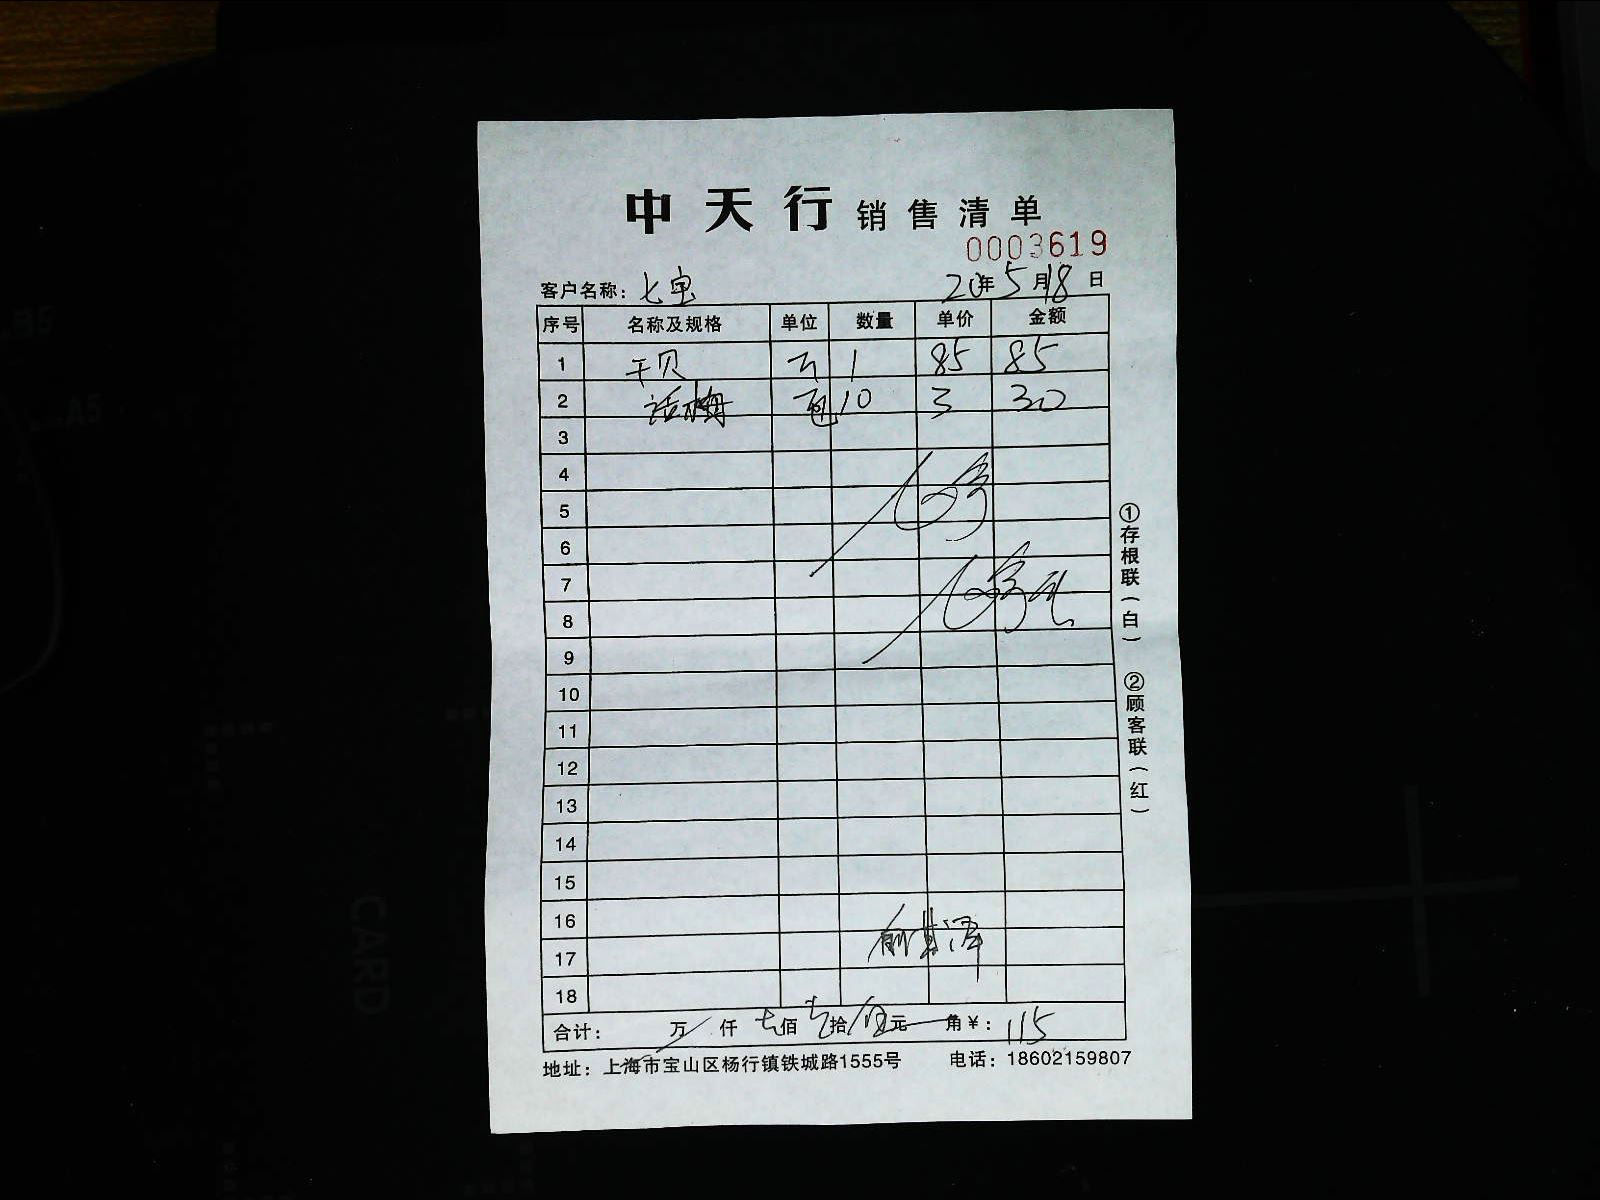 中天行 销售清单
0003619
客户名称：七宝 20年5月18日
序号 名称及规格 单位 数量 单价 金额
1 干贝 1 85 85
2 话梅 包 10 3 30
3
4
5
6
7
8
9
10
11
12
13
14
15
16
17
18
合计： 万 仟 壹佰壹拾伍元 角￥：115
地址：上海市宝山区杨行镇铁城路1555号 电话：18602159807
①存根联（白） ②顾客联（红）